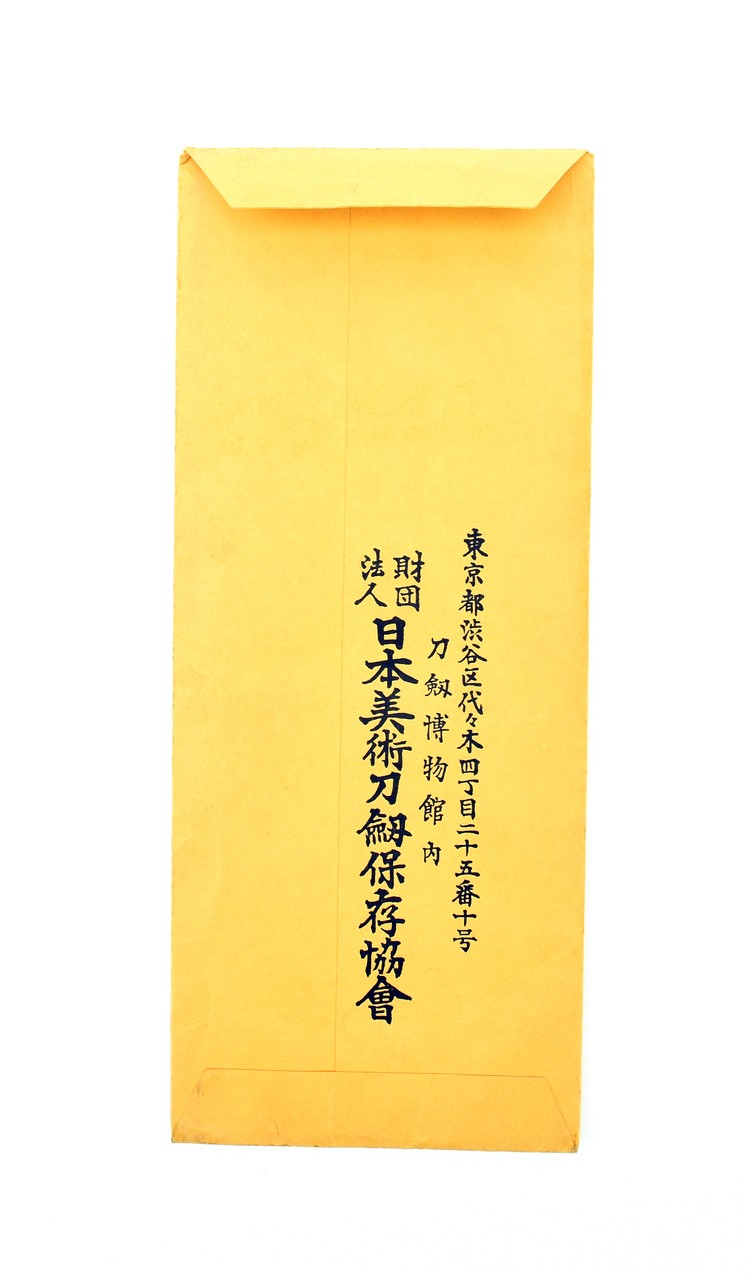 東京都渋谷区代々木四丁目二十五番十号
刀劔博物館内
財団法人日本美術刀劔保存協會